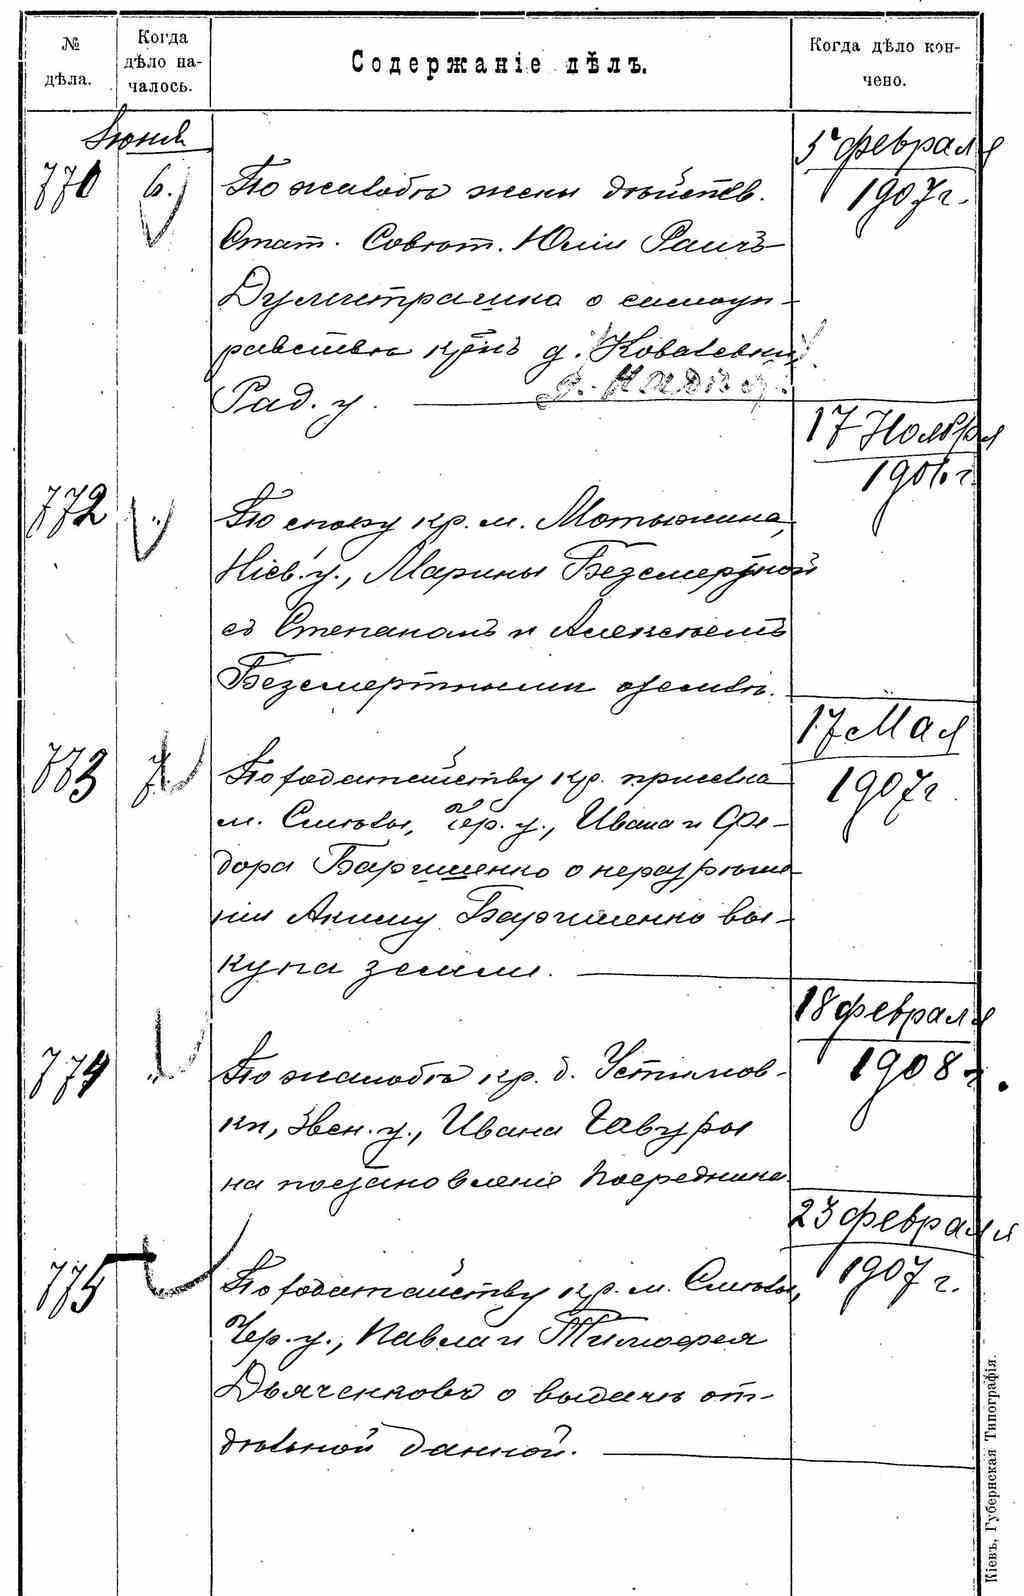 № дѣла.
Когда дѣло на-
чалось.
Содержаніе дѣлъ.
Когда дѣло кон-
чено.
Іюнь
771 6. По жалобѣ жены дѣйств.
Стат. Совѣт. Юліи Раичъ
о самоуп-
равствѣ кр-нъ д. Ковалевки,
Рад. у.
5 февраля
1907 г.
772 По спору кр. м. Мотыжина,
Кіев. у., Марины Безсмертной
съ Степаномъ и Алексѣемъ
Безсмертными о землѣ.
17 Ноября
1906 г.
773 7. По ходатайству кр. присевка
м. Смѣлы, Чер. у., Ивана и Фе-
дора о неразрѣше-
ніи Акиму вы-
купа земли.
17 Мая
1907 г.
774 По жалобѣ кр. д. Устимов-
ки, Звен. у., Ивана Гавуры
на постановленіе Посредника.
18 февраля
1908 г.
775 По ходатайству кр. м. Смѣлы,
Чер. у., Павла и Тимофея
Дьяченковъ о выдачѣ от-
дѣльной данной.
23 февраля
1907 г.
Кіевъ, Губернская Типографія.